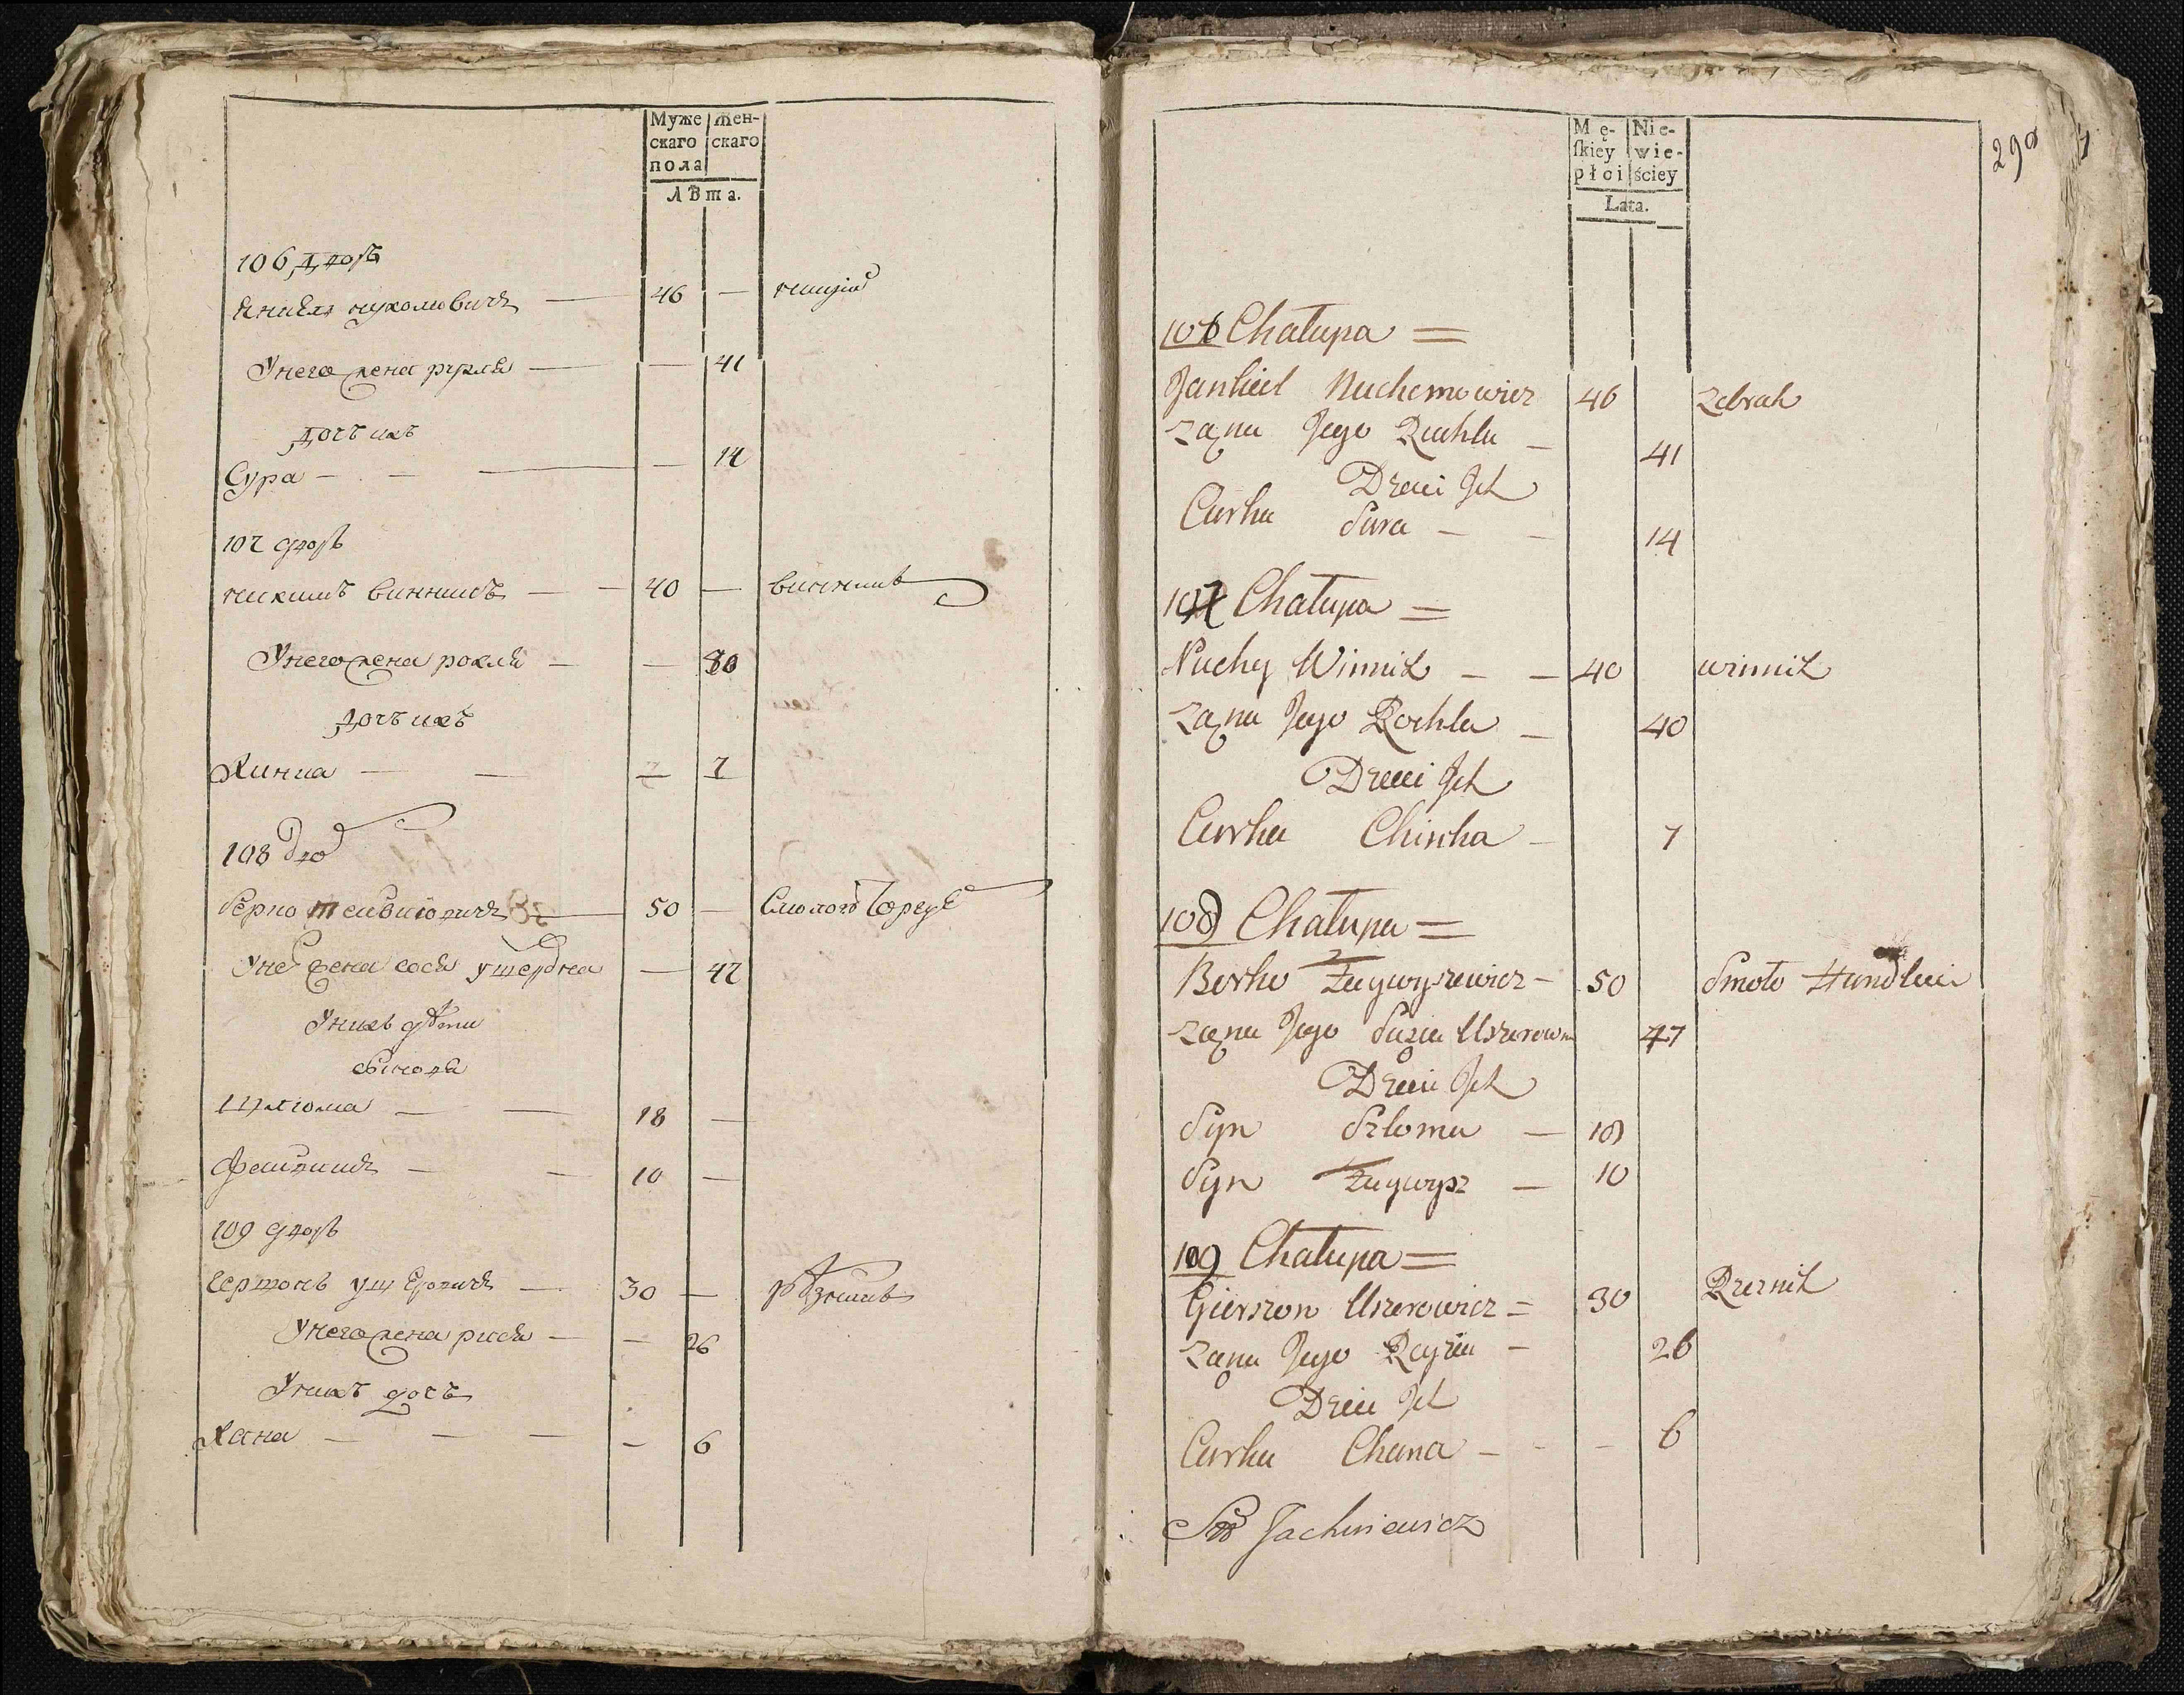 Муже
скаго
пола
Жен-
скаго
Лѣта.
106 дворъ
46 — нищій
У него жена рухля — — 41
дочь ихъ
Сура — — — 14
107 дворъ
винникъ — — 40 — винникъ
У него жена рохля — — 80
дочь ихъ
Хинка — — 7
108 дво
Берко — 50 —
У не жена сося ушеровна — 47
У нихъ дѣти
сыновья
Шлиома — — 18 —
— — 10 —
109 дворъ
Гершонъ ушеровичъ — 30 — рѣзникъ
У него жена рися — — 26
У нихъ дочь
Хана — — — — 6
Mę-
ſkiey
płci
Nie-
wie-
ściey
Lata.
290
106 Chałupa =
Jankiel Nuchemowicz 46 Zebrak
Zona Jego Ruchla — 41
Dzieci Jch
Curka Sura — — 14
107 Chałupa =
Nuchy Winnik — — 40 winnik
Zona Jego Rochla — 40
Dzieci Jch
Curka Chinka — 7
108 Chałupa =
Berko — 50 Smoło Handluie
Zona Jego Suzia Uszerown 47
Dzieci Jch
Syn Szloma — 18
Syn — 10
109 Chałupa =
Gierszon Uszerowicz = 30 Rzeznik
Zona Jego Rayzia — 26
Dzieci Jch
Curka Chana — - — 6
Jachniewicz